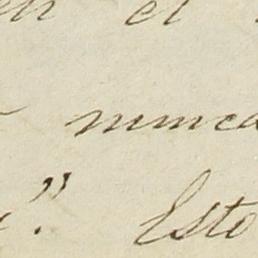 en el
nunca
." Esto